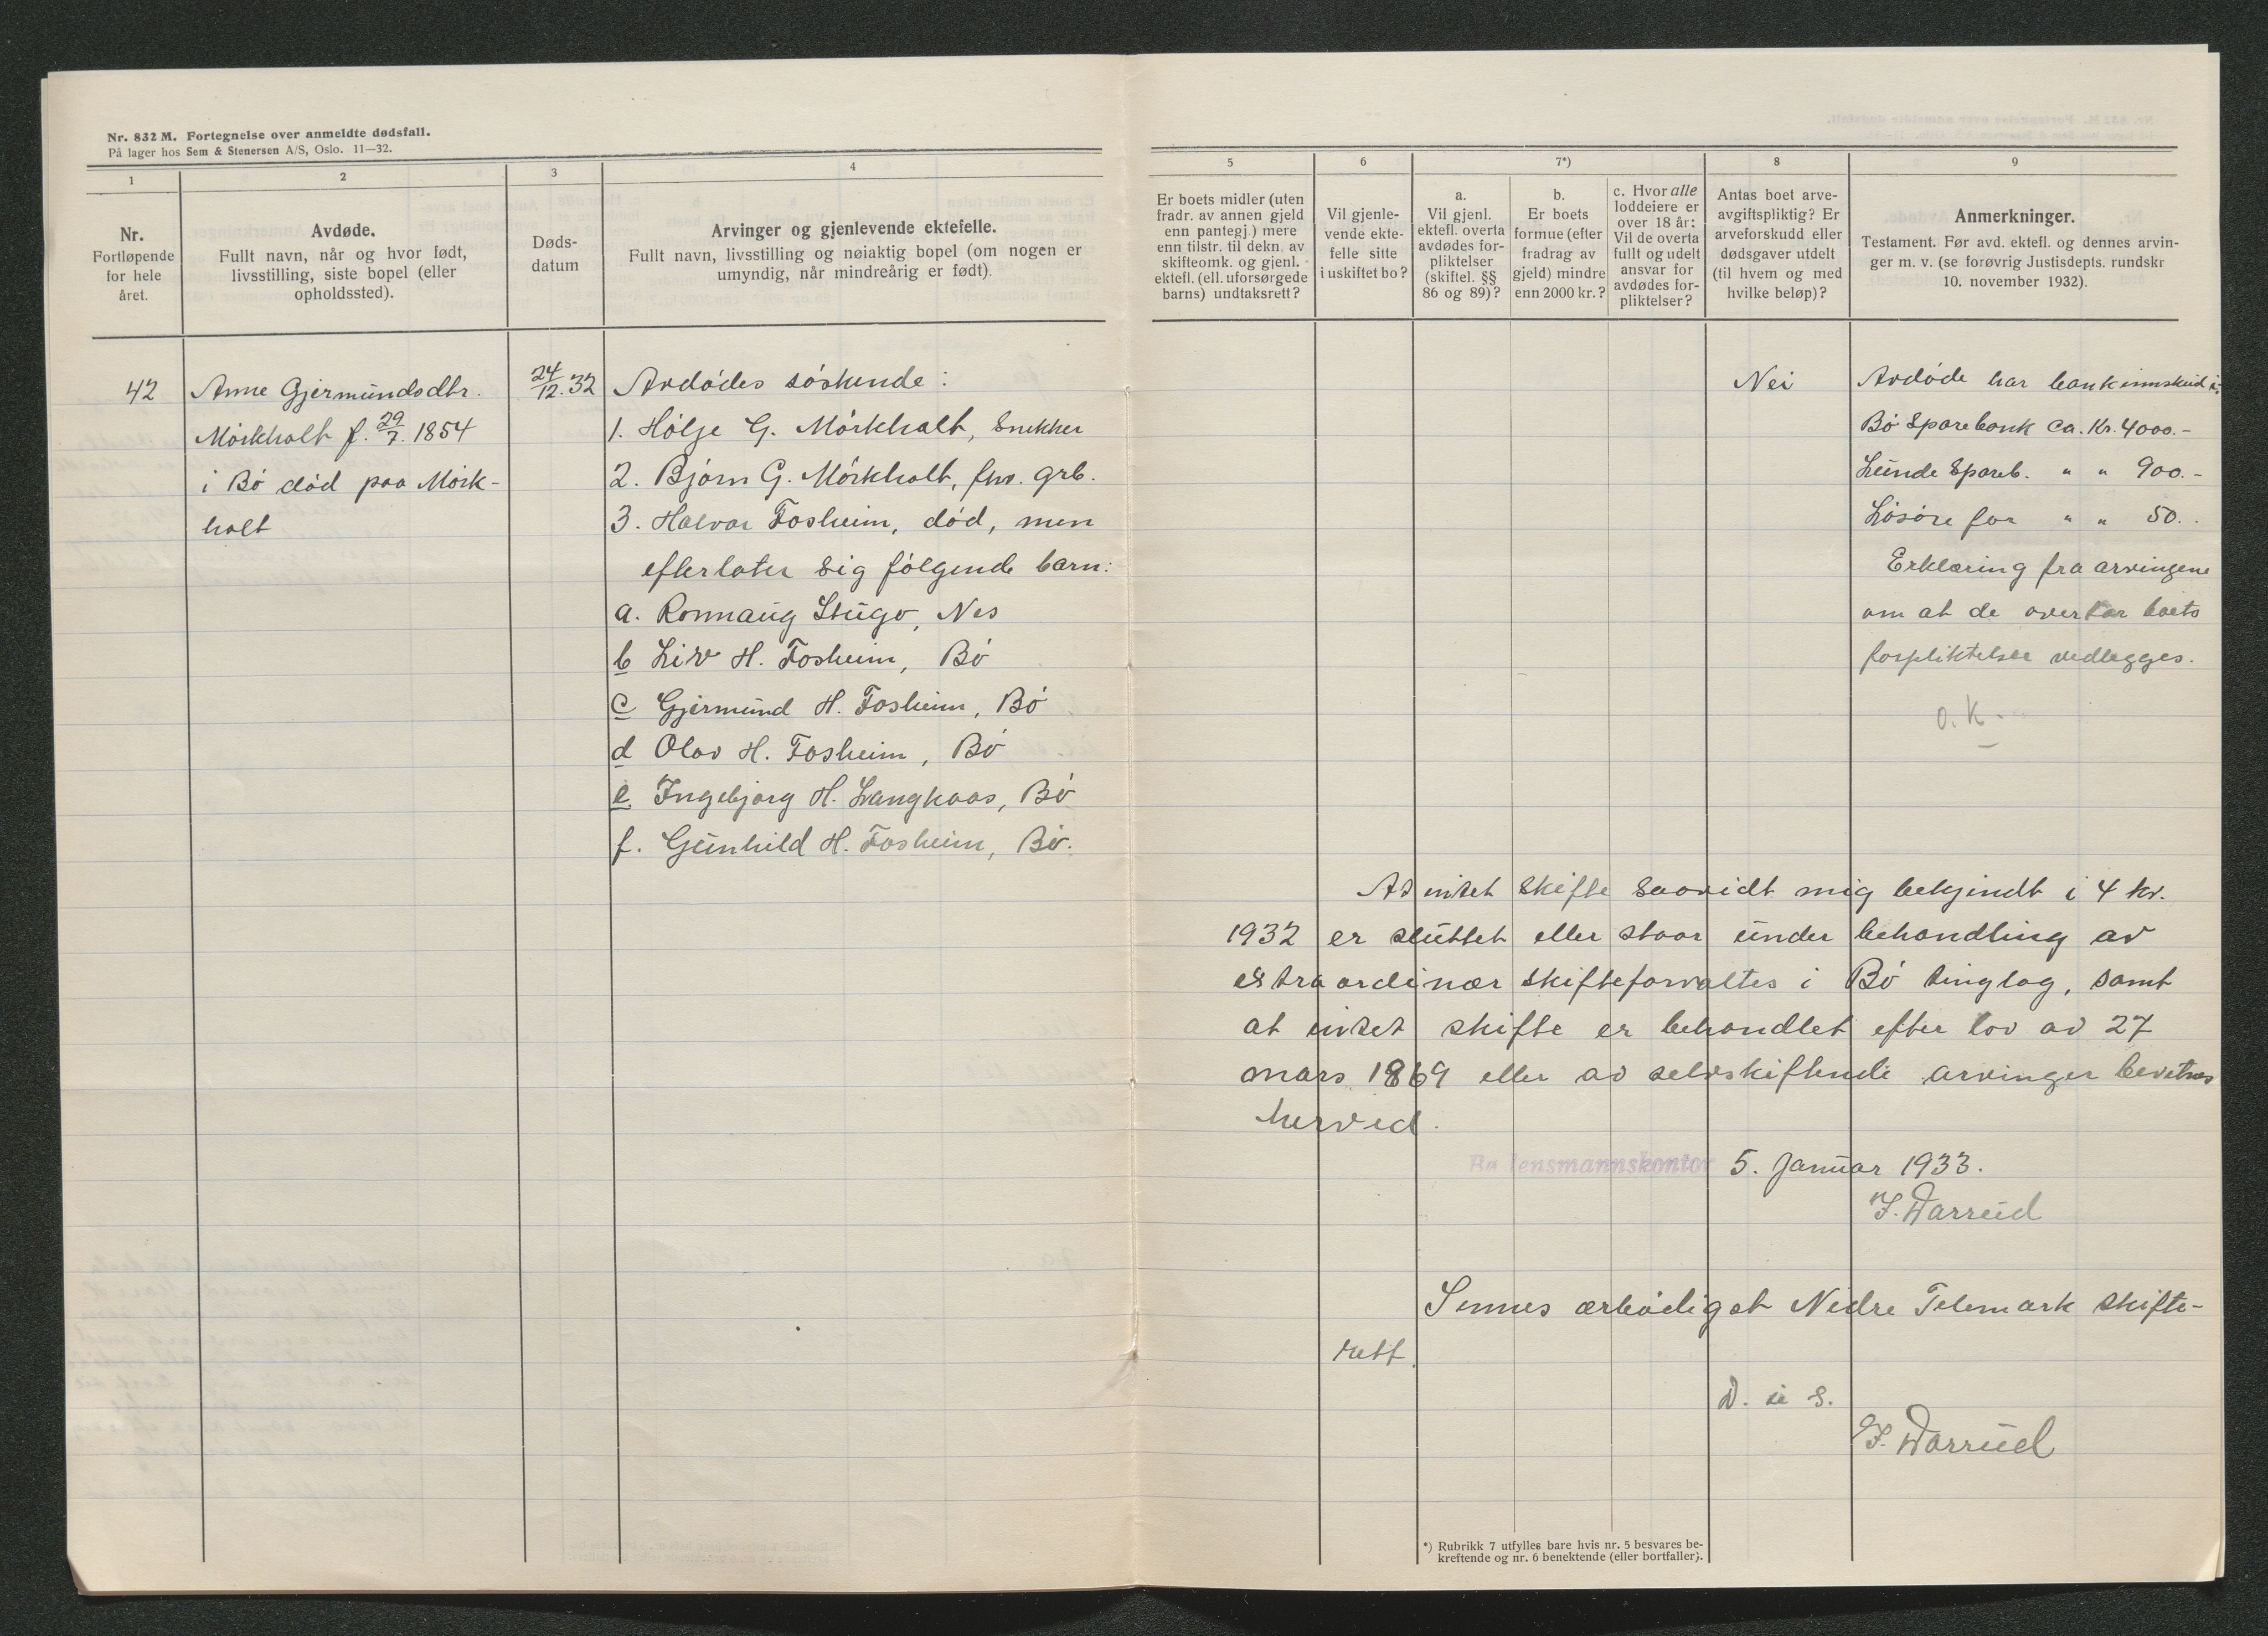 Nr. 832 M. Fortegnelse over anmeldte dødsfall.
På lager hos Sem & Stenersen A/S, Oslo. 11—32.
1
2
3
4
Nr.
Fortløpende
for hele
året.
Avdøde.
Fullt navn, når og hvor født,
livsstilling, siste bopel (eller
opholdssted).
Døds-
datum
Arvinger og gjenlevende ektefelle.
Fullt navn, livsstilling og nøiaktig bopel (om nogen er
umyndig, når mindreårig er født).
42
Anne Gjermundsdtr.
Mørkholt f. 29/7. 1854
i Bø død paa Mørk-
holt
24/12. 32
Avdødes søskende:
1. Hølje G. Mørkholt, Snekker
2. Bjørn G. Mørkholt, fhv. grb.
3. Halvor Fosheim, død, men
efterlater sig følgende barn:
a. Ronnaug Stugo, Nes
b Liv H. Fosheim, Bø
c Gjermund H. Fosheim, Bø
d Olav H. Fosheim, Bø
e Ingebjørg H. Langkaas, Bø
f. Gunhild H. Fosheim, Bø.
5
6
7*)
8
9
Er boets midler (uten
fradr. av annen gjeld
enn pantegj.) mere
enn tilstr. til dekn. av
skifteomk. og gjenl.
ektefl. (ell. uforsørgede
barns) undtaksrett?
Vil gjenle-
vende ekte-
felle sitte
i uskiftet bo?
a.
Vil gjenl.
ektefl. overta
avdødes for-
pliktelser
(skiftel. §§
86 og 89)?
b.
Er boets
formue (efter
fradrag av
gjeld) mindre
enn 2000 kr.?
c. Hvor alle
loddeiere er
over 18 år:
Vil de overta
fullt og udelt
ansvar for
avdødes for-
pliktelser?
Antas boet arve-
avgiftspliktig? Er
arveforskudd eller
dødsgaver utdelt
(til hvem og med
hvilke beløp)?
Anmerkninger.
Testament. Før avd. ektefl. og dennes arvin-
ger m. v. (se forøvrig Justisdepts. rundskr
10. november 1932).
Nei
Avdøde har bankinnskud i:
Bø Sparebank ca. Kr. 4000.-
Lunde Spareb. " " 900.-
Løsøre for " " 50.
Erklæring fra arvingene
om at de overtar boets
forpliktelser vedlegges.
O.K.
At intet skifte saavidt mig bekjendt i 4 kv.
1932 er sluttet eller staar under behandling av
extraordinær skifteforvaltes i Bø tinglag, samt
at intet skifte er behandlet efter lov av 27
mars 1869 eller av selvskiftende arvinger bevitnes
herved.
Bø lensmannskontor 5. januar 1933.
F. Warrud
Sennes ærbødigst Nedre Telemark skifte-
rett.
D. u S.
F. Warrud
*) Rubrikk 7 utfylles bare hvis nr. 5 besvares be-
kreftende og nr. 6 benektende (eller bortfaller).